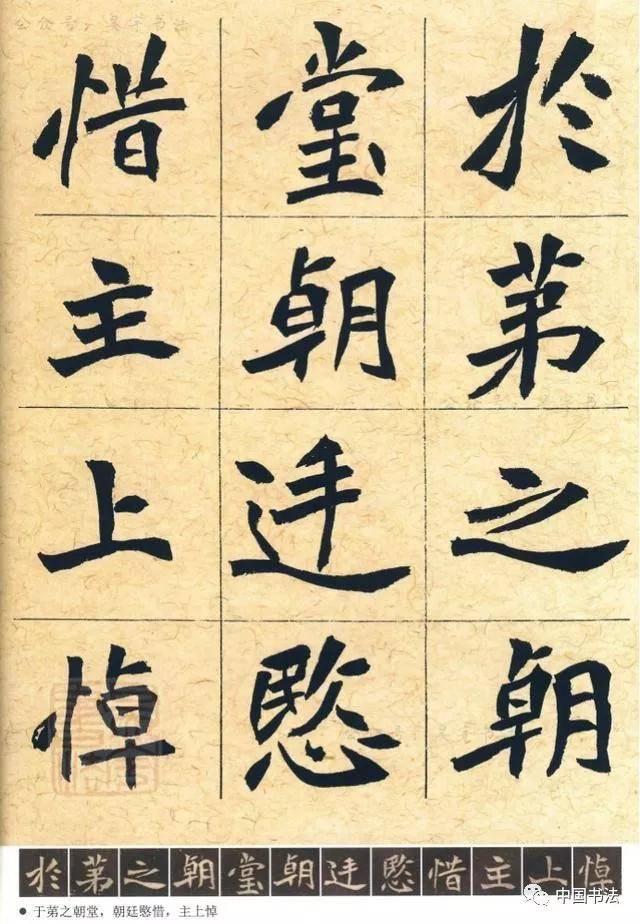 於第之朝
堂朝廷愍
惜主上悼
於第之朝堂朝廷愍惜主上悼
● 于第之朝堂，朝廷愍惜，主上悼
中国书法